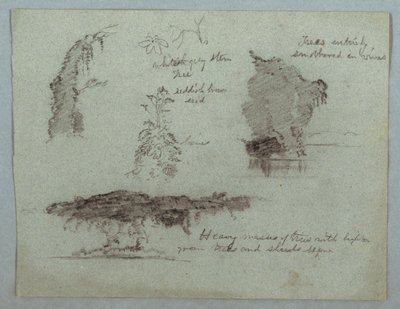 Trees entirely
smothered in vines
whitish grey stem
Tree
reddish brown
seed
Heavy masses of trees with lighter
green trees and shrubs before